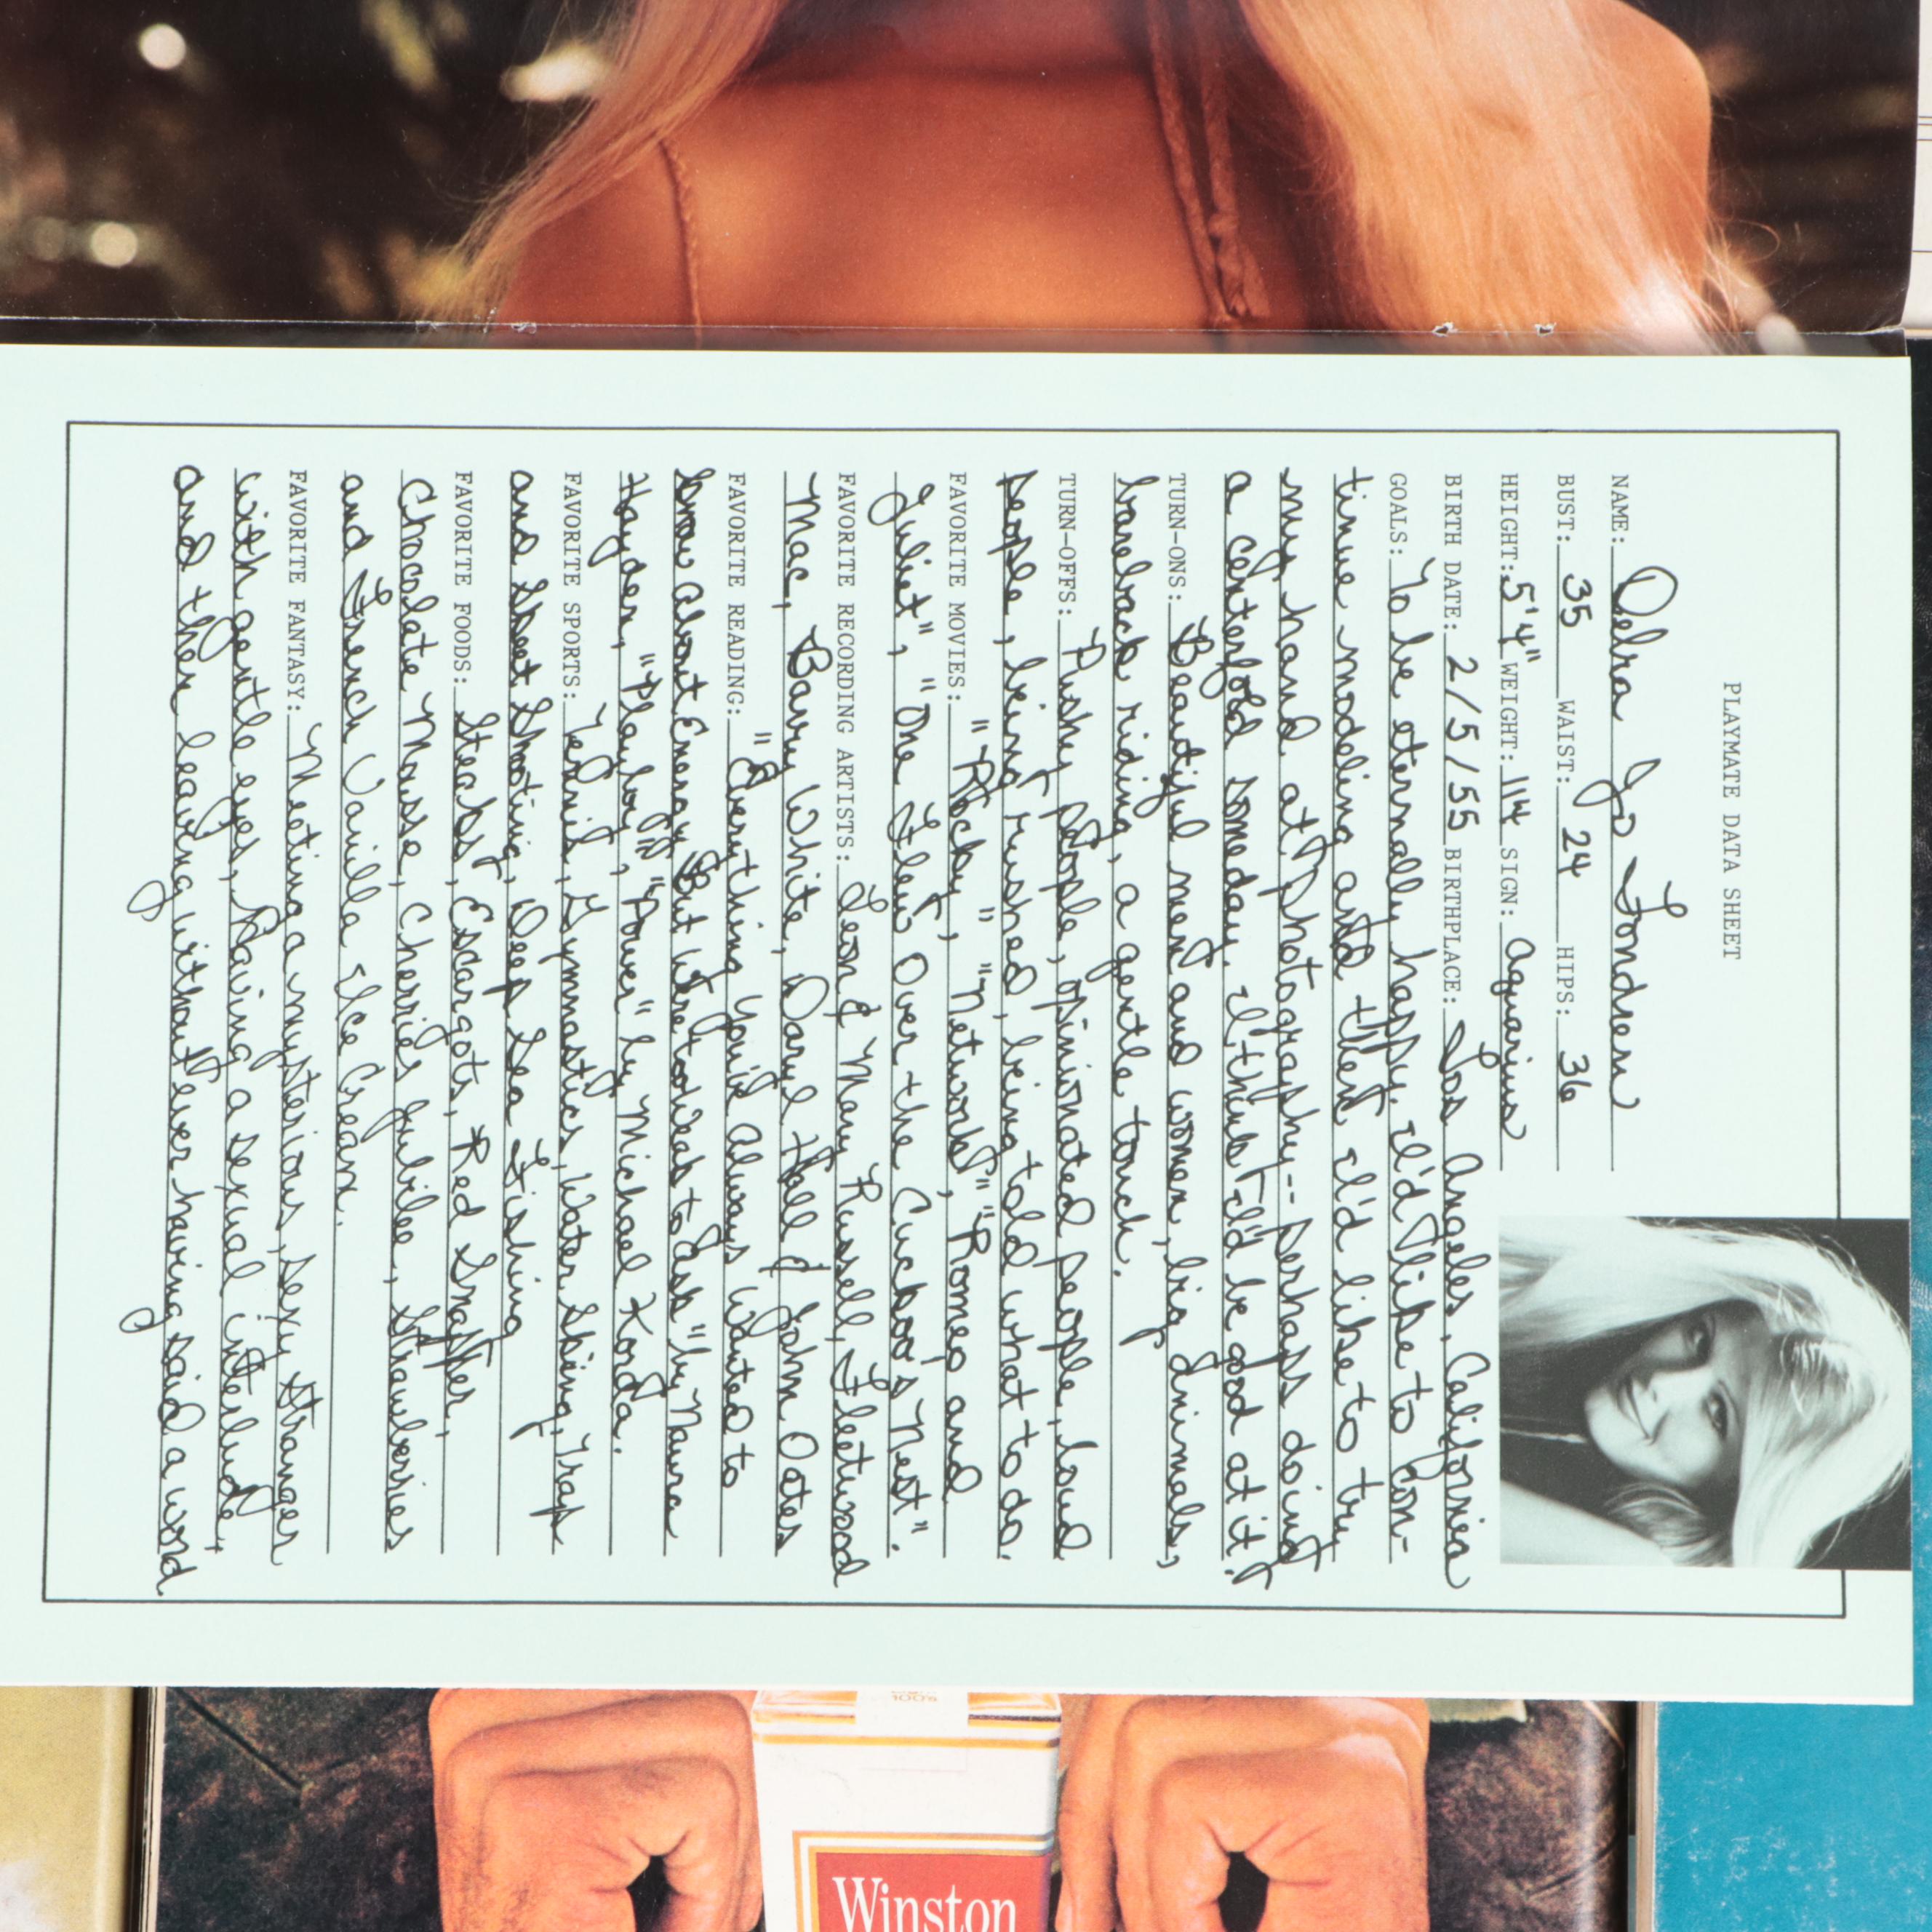 PLAYMATE DATA SHEET
NAME: Debra Jo Fondren
BUST: 35 WAIST: 24 HIPS: 36
HEIGHT: 5'4" WEIGHT: 114 SIGN: Aquarius
BIRTH DATE: 2/5/55 BIRTHPLACE: Los Angeles, California
GOALS: To be eternally happy. I'd like to con-
tinue modeling and then I'd like to try
my hand at photography -- perhaps doing
a centerfold someday. I think I'd be good at it!
TURN-ONS: Beautiful men and women, big animals,
bareback riding, a gentle touch.
TURN-OFFS: Pushy people, opinionated people, loud
people, being rushed, being told what to do.
FAVORITE MOVIES: "Rocky," "Network", "Romeo and
Juliet", "One Flew Over the Cuckoo's Nest".
FAVORITE RECORDING ARTISTS: Leon & Mary Russell, Fleetwood
Mac, Barry White, Daryl Hall & John Oates
FAVORITE READING: "Everything You've Always Wanted to
Know About Energy But Were too Weak to Ask" by Naura
Hayden, "Playboy", "Power" by Michael Korda.
FAVORITE SPORTS: Tennis, Gymnastics, Water Skiing, Trap
and Skeet Shooting, Deep Sea Fishing
FAVORITE FOODS: Steaks, Escargots, Red Snapper,
Chocolate Mousse, Cherries Jubilee, Strawberries
and French Vanilla Ice Cream.
FAVORITE FANTASY: Meeting a mysterious, sexy stranger
with gentle eyes, having a sexual interlude,
and then leaving without ever having said a word
100's
Winston